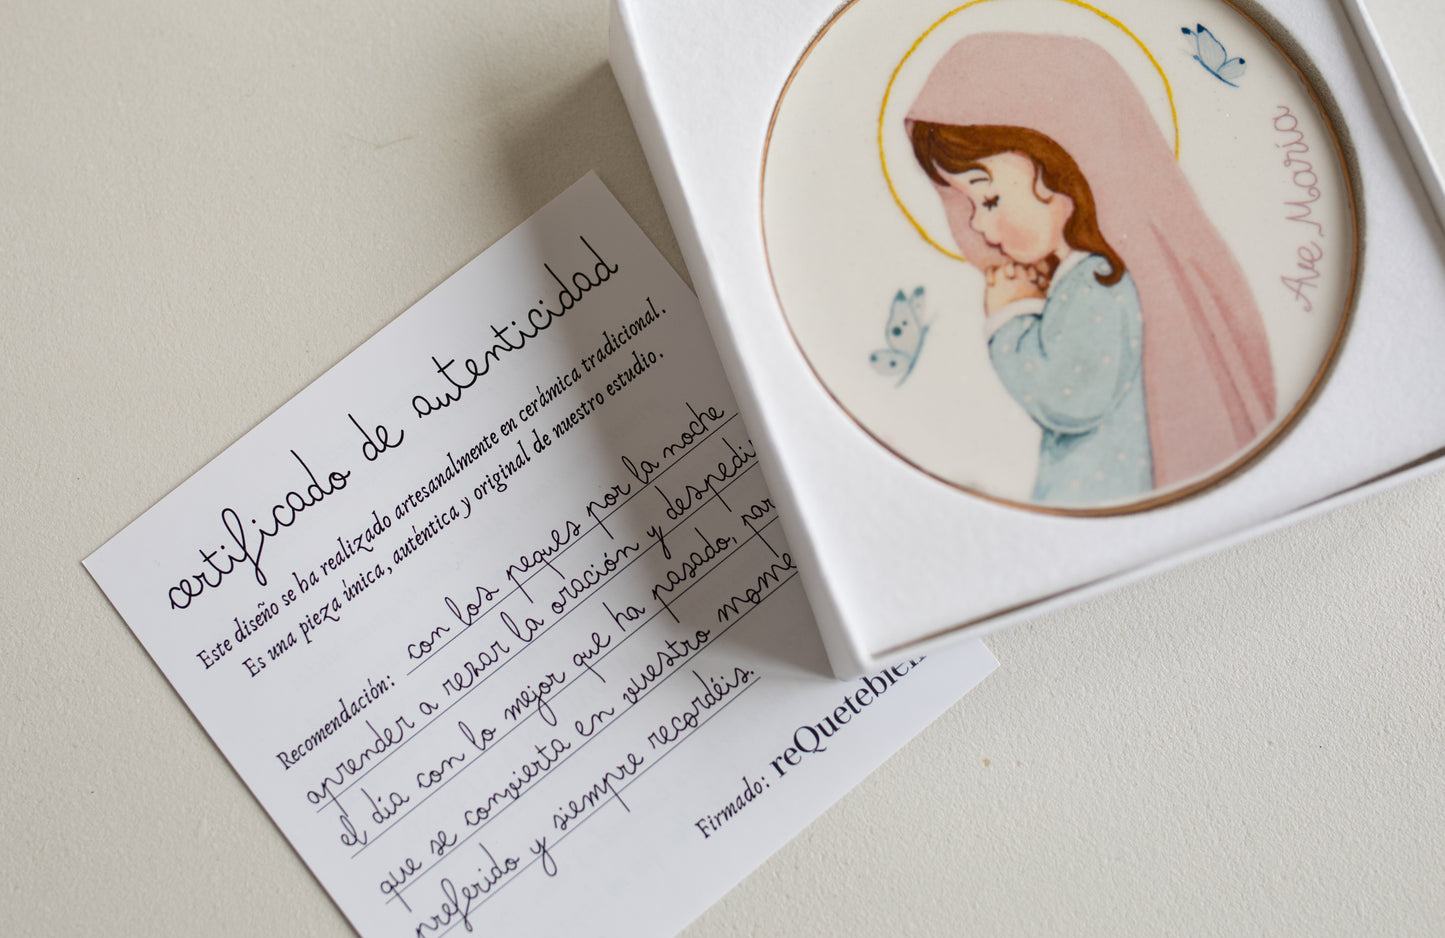 certificado de autenticidad
Este diseño se ha realizado artesanalmente en cerámica tradicional.
Es una pieza única, auténtica y original de nuestro estudio.
Recomendación: con los peques por la noche
aprender a rezar la oración y despedi
el día con lo mejor que ha pasado, par
que se convierta en vuestro mome
preferido y siempre recordéis.
Firmado: reQuetebien
Ave Maria